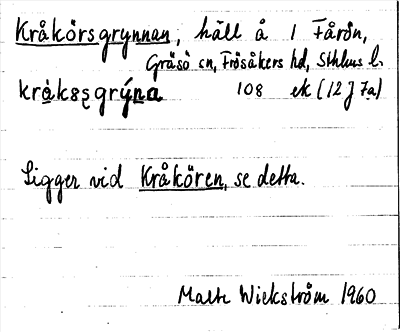 Kråkörsgrynnan, häll å 1 Fårön,
Gräsö sn, Frösåkers hd, Sthlms l.
108 ek (12 J 7a)
Ligger vid Kråkören, se detta.
Malte Wickström 1960